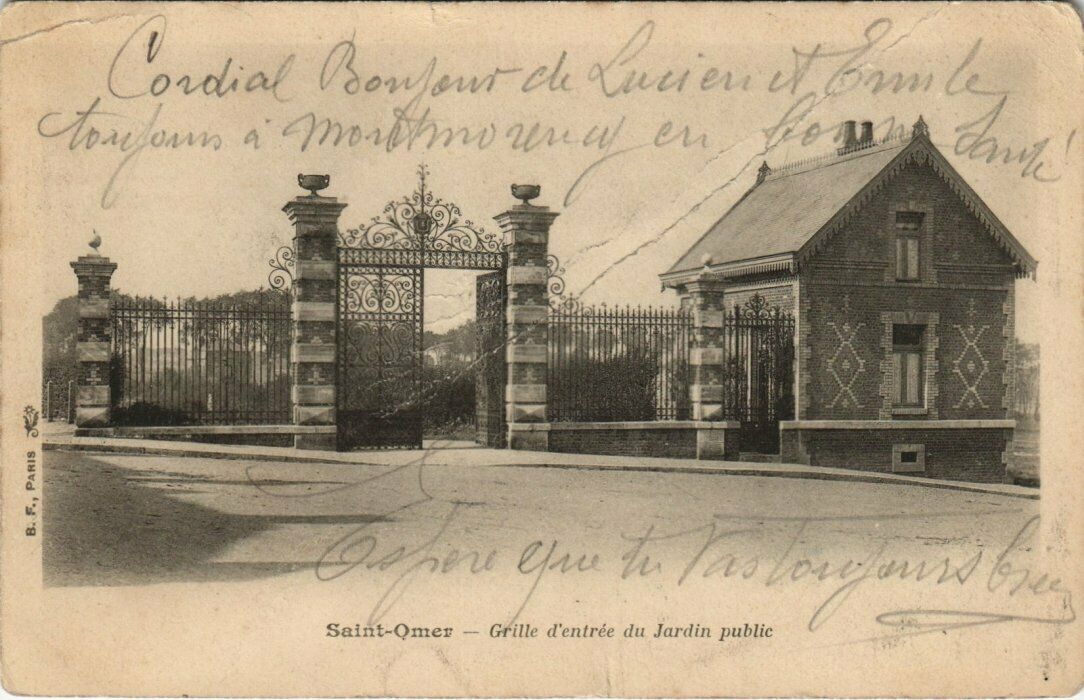 Cordial Bonjour de Lucien et Emile
toujours à Montmorency en bonne Santé
B. F., PARIS
Espère que tu Vas toujours bien
Saint-Omer — Grille d'entrée du Jardin public